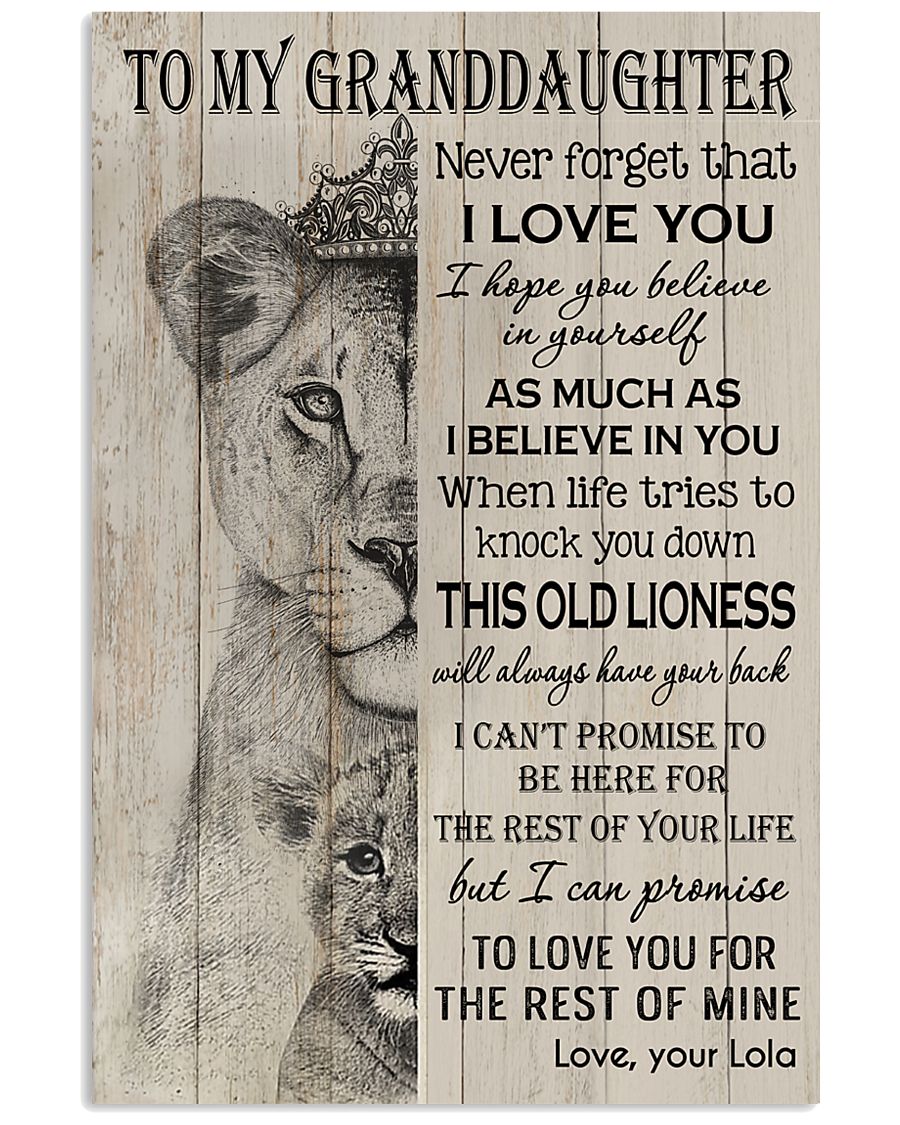 TO MY GRANDDAUGHTER
Never forget that
I LOVE YOU
I hope you believe
in yourself
AS MUCH AS
I BELIEVE IN YOU
When life tries to
knock you down
THIS OLD LIONESS
will always have your back
I CAN'T PROMISE TO
BE HERE FOR
THE REST OF YOUR LIFE
but I can promise
TO LOVE YOU FOR
THE REST OF MINE
Love, your Lola